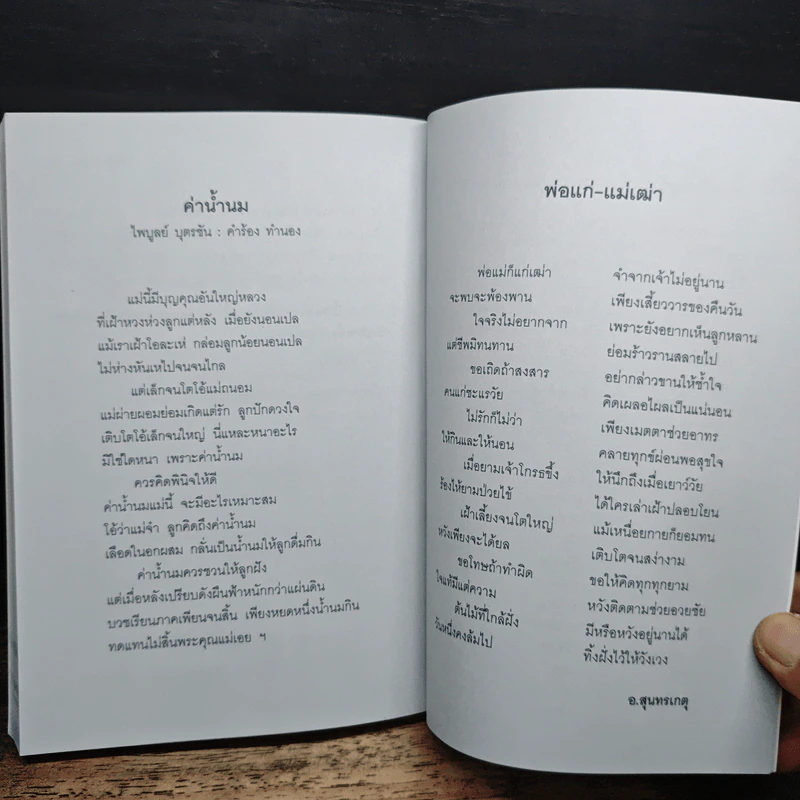 ค่าน้ำนม
ไพบูลย์ บุตรขัน : คำร้อง ทำนอง
แม่นี้มีบุญคุณอันใหญ่หลวง
ที่เฝ้าหวงห่วงลูกแต่หลัง เมื่อยังนอนเปล
แม้เราเฝ้าโอละเห่ กล่อมลูกน้อยนอนเปล
ไม่ห่างหันเหไปจนจนไกล
แต่เล็กจนโตโอ้แม่ถนอม
แม่ผ่ายผอมย่อมเกิดแต่รัก ลูกปักดวงใจ
เติบโตโอ้เล็กจนใหญ่ นี่แหละหนาอะไร
มิใช่ใดหนา เพราะค่าน้ำนม
ควรคิดพินิจให้ดี
ค่าน้ำนมแม่นี้ จะมีอะไรเหมาะสม
โอ้ว่าแม่จ๋า ลูกคิดถึงค่าน้ำนม
เลือดในอกผสม กลั่นเป็นน้ำนมให้ลูกดื่มกิน
ค่าน้ำนมควรชวนให้ลูกฝัง
แต่เมื่อหลังเปรียบดังผืนฟ้าหนักกว่าแผ่นดิน
บวชเรียนภาคเพียนจนสิ้น เพียงหยดหนึ่งน้ำนมกิน
ทดแทนไม่สิ้นพระคุณแม่เอย ฯ
พ่อแก่-แม่เฒ่า
พ่อแม่ก็แก่เฒ่า จำจากเจ้าไม่อยู่นาน
จะพบจะพ้องพาน เพียงเสี้ยววารของคืนวัน
ใจจริงไม่อยากจาก เพราะยังอยากเห็นลูกหลาน
แต่ชีพมิทนทาน ย่อมร้าวรานสลายไป
ขอเถิดถ้าสงสาร อย่ากล่าวขานให้ช้ำใจ
คนแก่ชะแรวัย คิดเผลอไผลเป็นแน่นอน
ไม่รักก็ไม่ว่า เพียงเมตตาช่วยอาทร
ให้กินและให้นอน คลายทุกข์ผ่อนพอสุขใจ
เมื่อยามเจ้าโกรธขึ้ง ให้นึกถึงเมื่อเยาว์วัย
ร้องไห้ยามป่วยไข้ ได้ใครเล่าเฝ้าปลอบโยน
เฝ้าเลี้ยงจนโตใหญ่ แม้เหนื่อยกายก็ยอมทน
หวังเพียงจะได้ยล เติบโตจนสง่างาม
ขอโทษถ้าทำผิด ขอให้คิดทุกทุกยาม
ใจแท้มีแต่ความ หวังติดตามช่วยอวยชัย
ต้นไม้ที่ใกล้ฝั่ง มีหรือหวังอยู่นานได้
วันหนึ่งคงล้มไป ทิ้งฝั่งไว้ให้วังเวง
อ.สุนทรเกตุ